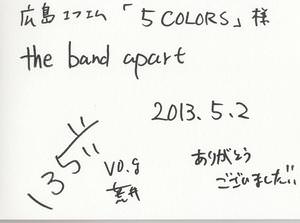 広島エフエム「5 COLORS」様
the band apart
2013.5.2
135"
vo.g
荒井
ありがとう
ございました!!